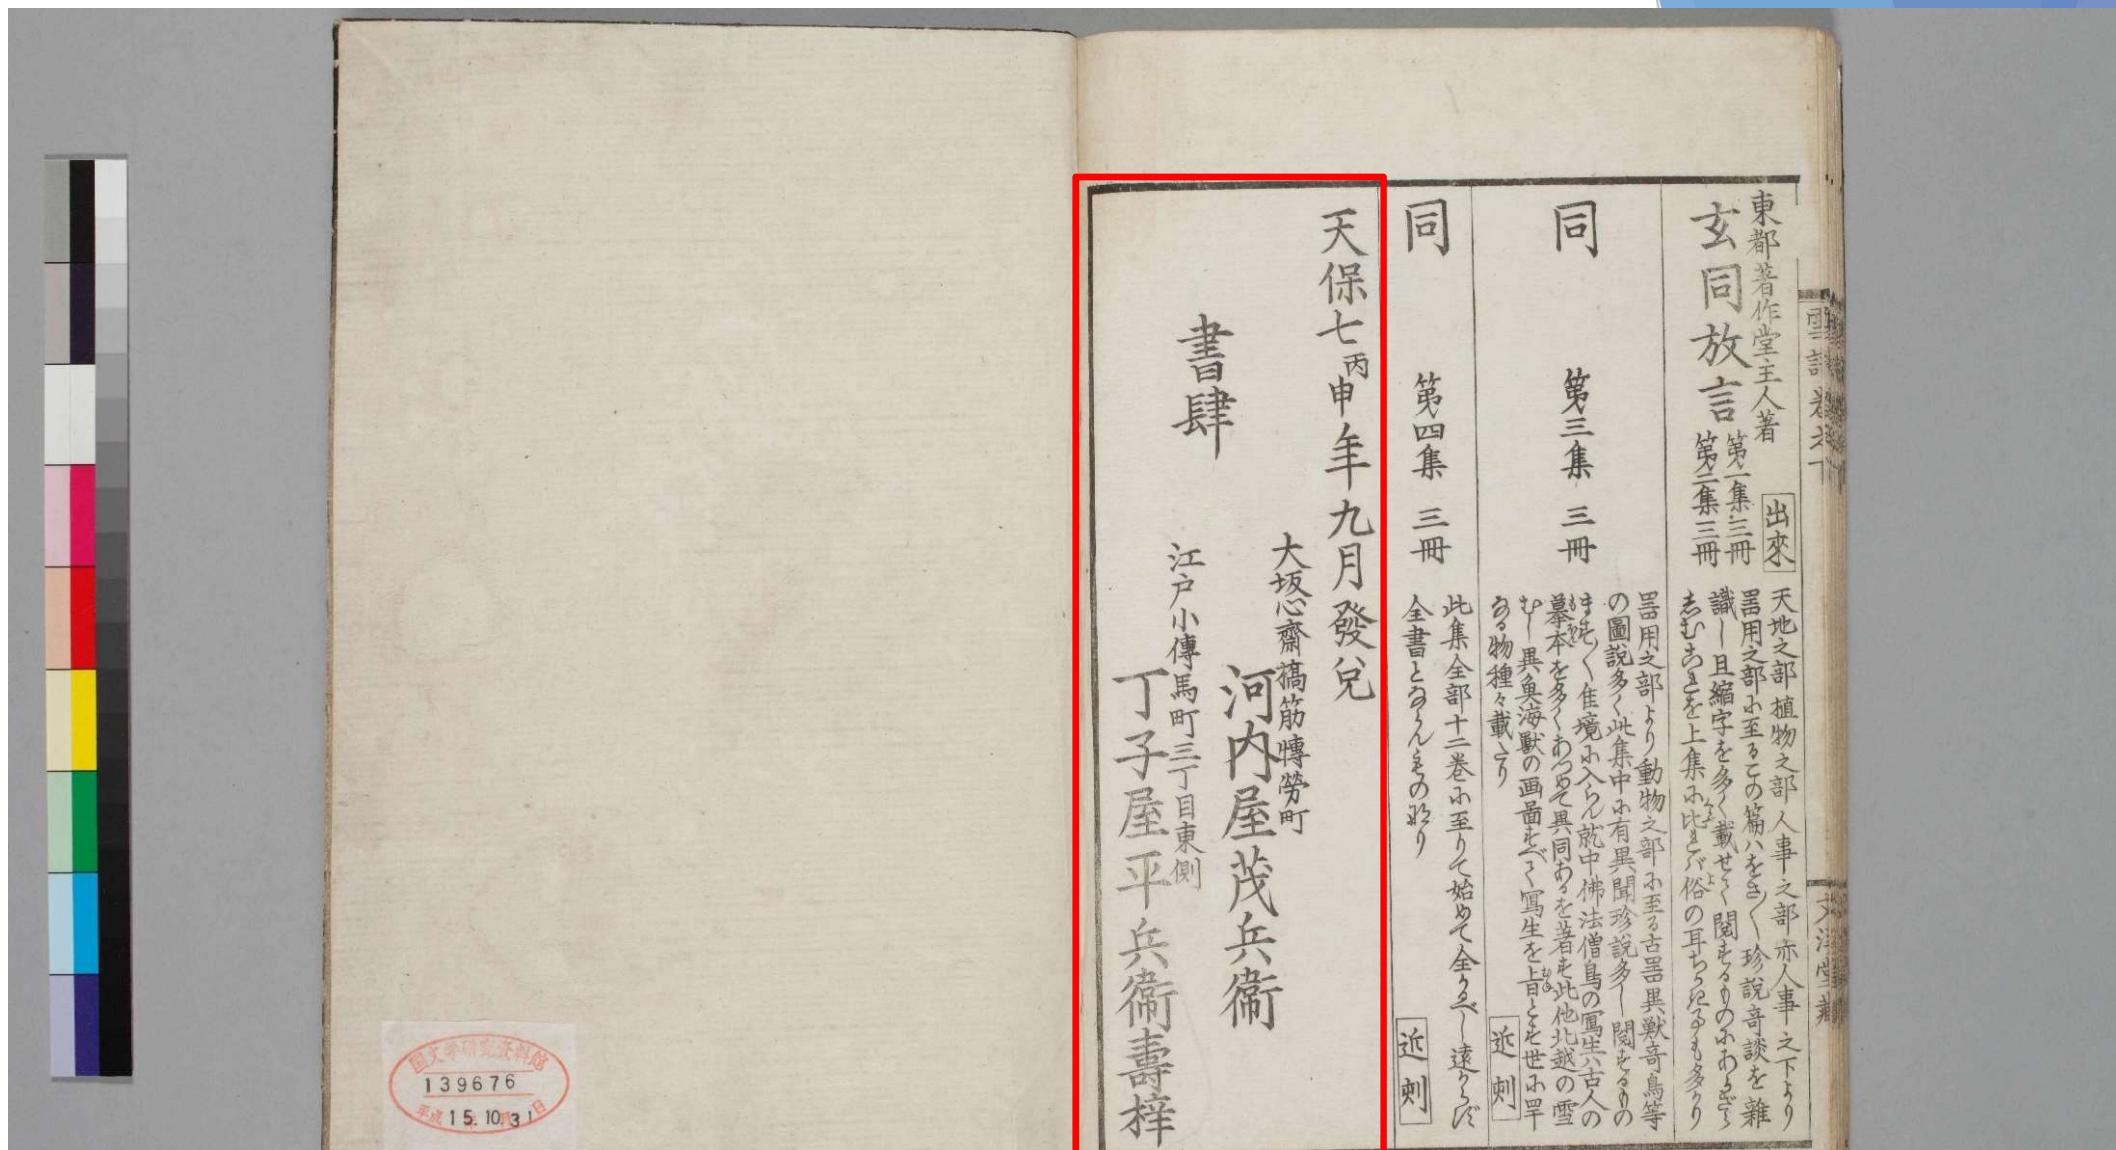 東都著作堂主人著
玄同放言
第一集三冊
第二集三冊
出來
天地之部植物之部人事之部亦人事之下より
器用之部に至るこの篇ハをさ〱珍説奇談を雜
識し且縮字を多く載せて閲するものにあかざら
しむこれを上集に比れバ俗の耳ちかき事も多かり
同
第三集 三冊
器用之部より動物之部に至る古器異獸奇鳥等
の圖説多く此集中に有異聞珍説多し閲するもの
ますく佳境に入らん就中佛法僧鳥の寫生ハ古人の
摹本を多くあつめて異同あるを著す此他北越の雪
むし異魚海獸の画圖すべて寫生を旨とす世に罕
なる物種々載たり
近刻
同
第四集 三冊
此集全部十二巻に至りて始めて全かるべし遠からず
全書とならんもの也
近刻
天保七丙申年九月發兌
書肆
大坂心齋橋筋博勞町
河内屋茂兵衞
江戸小傳馬町三丁目東側
丁子屋平兵衞壽梓
文溪堂藏
国文学研究資料館
139676
平成 15.10.31日